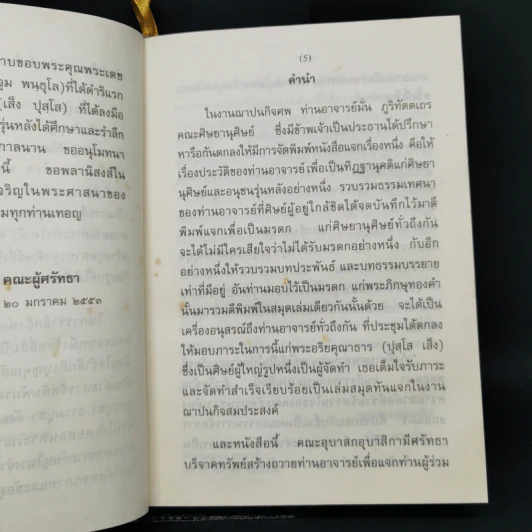 าบขอบพระคุณพระเดช
จูม พนฺธุโล)ที่ได้ดำริแรก
(เส็ง ปุสฺโส) ที่ได้ลงมือ
รุ่นหลังได้ศึกษาและรำลึก
กาลนาน ขออนุโมทนา
นี้ ขอพลานิสงส์ใน
จริญในพระศาสนาของ
มทุกท่านเทอญ
คณะผู้ศรัทธา
๒๐ มกราคม ๒๕๕๓
(5)
คำนำ
ในงานฌาปนกิจศพ ท่านอาจารย์มั่น ภูริทัตตเถร
คณะศิษยานุศิษย์ ซึ่งมีข้าพเจ้าเป็นประธานได้ปรึกษา
หารือกันตกลงให้มีการจัดพิมพ์หนังสือแจกเรื่องหนึ่ง คือให้
เรื่องประวัติของท่านอาจารย์ เพื่อเป็นทิฏฐานุคติแก่ศิษยา
นุศิษย์และอนุชนรุ่นหลังอย่างหนึ่ง รวบรวมธรรมเทศนา
ของท่านอาจารย์ที่ศิษย์ผู้อยู่ใกล้ชิดได้จดบันทึกไว้มาตี
พิมพ์แจกเพื่อเป็นมรดก แก่ศิษยานุศิษย์ทั่วถึงกัน
จะได้ไม่มีใครเสียใจว่าไม่ได้รับมรดกอย่างหนึ่ง กับอีก
อย่างหนึ่งให้รวบรวมบทประพันธ์ และบทธรรมบรรยาย
เท่าที่มีอยู่ อันท่านมอบไว้เป็นมรดก แก่พระภิกษุทองคำ
นั้นมารวมตีพิมพ์ในสมุดเล่มเดียวกันนั้นด้วย จะได้เป็น
เครื่องอนุสรณ์ถึงท่านอาจารย์ทั่วถึงกัน ที่ประชุมได้ตกลง
ให้มอบภาระในการนี้แก่พระอริยคุณาธาร (ปุสฺโส เส็ง)
ซึ่งเป็นศิษย์ผู้ใหญ่รูปหนึ่งเป็นผู้จัดทำ เธอเต็มใจรับภาระ
และจัดทำสำเร็จเรียบร้อยเป็นเล่มสมุดทันแจกในงาน
ฌาปนกิจสมประสงค์
และหนังสือนี้ คณะอุบาสกอุบาสิกามีศรัทธา
บริจาคทรัพย์สร้างถวายท่านอาจารย์เพื่อแจกท่านผู้ร่วม